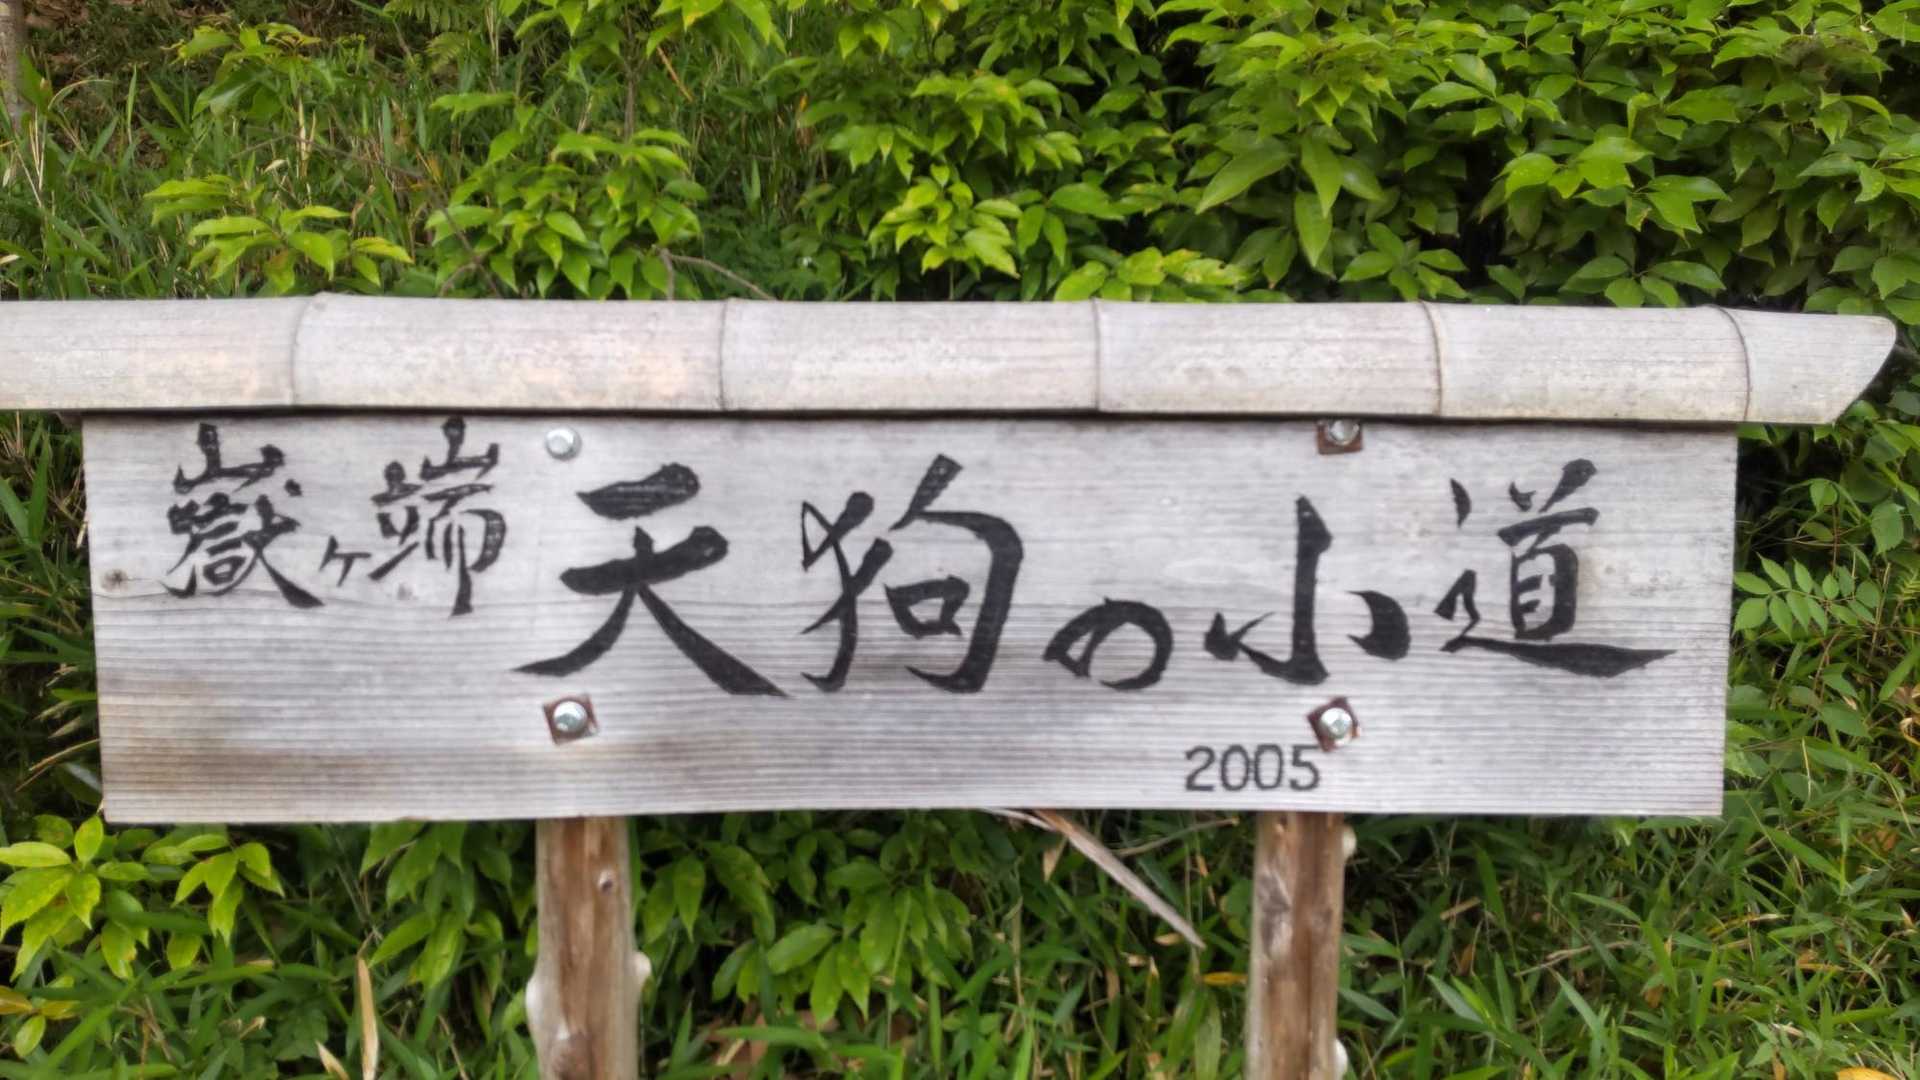 嶽ヶ端 天狗の小道
2005